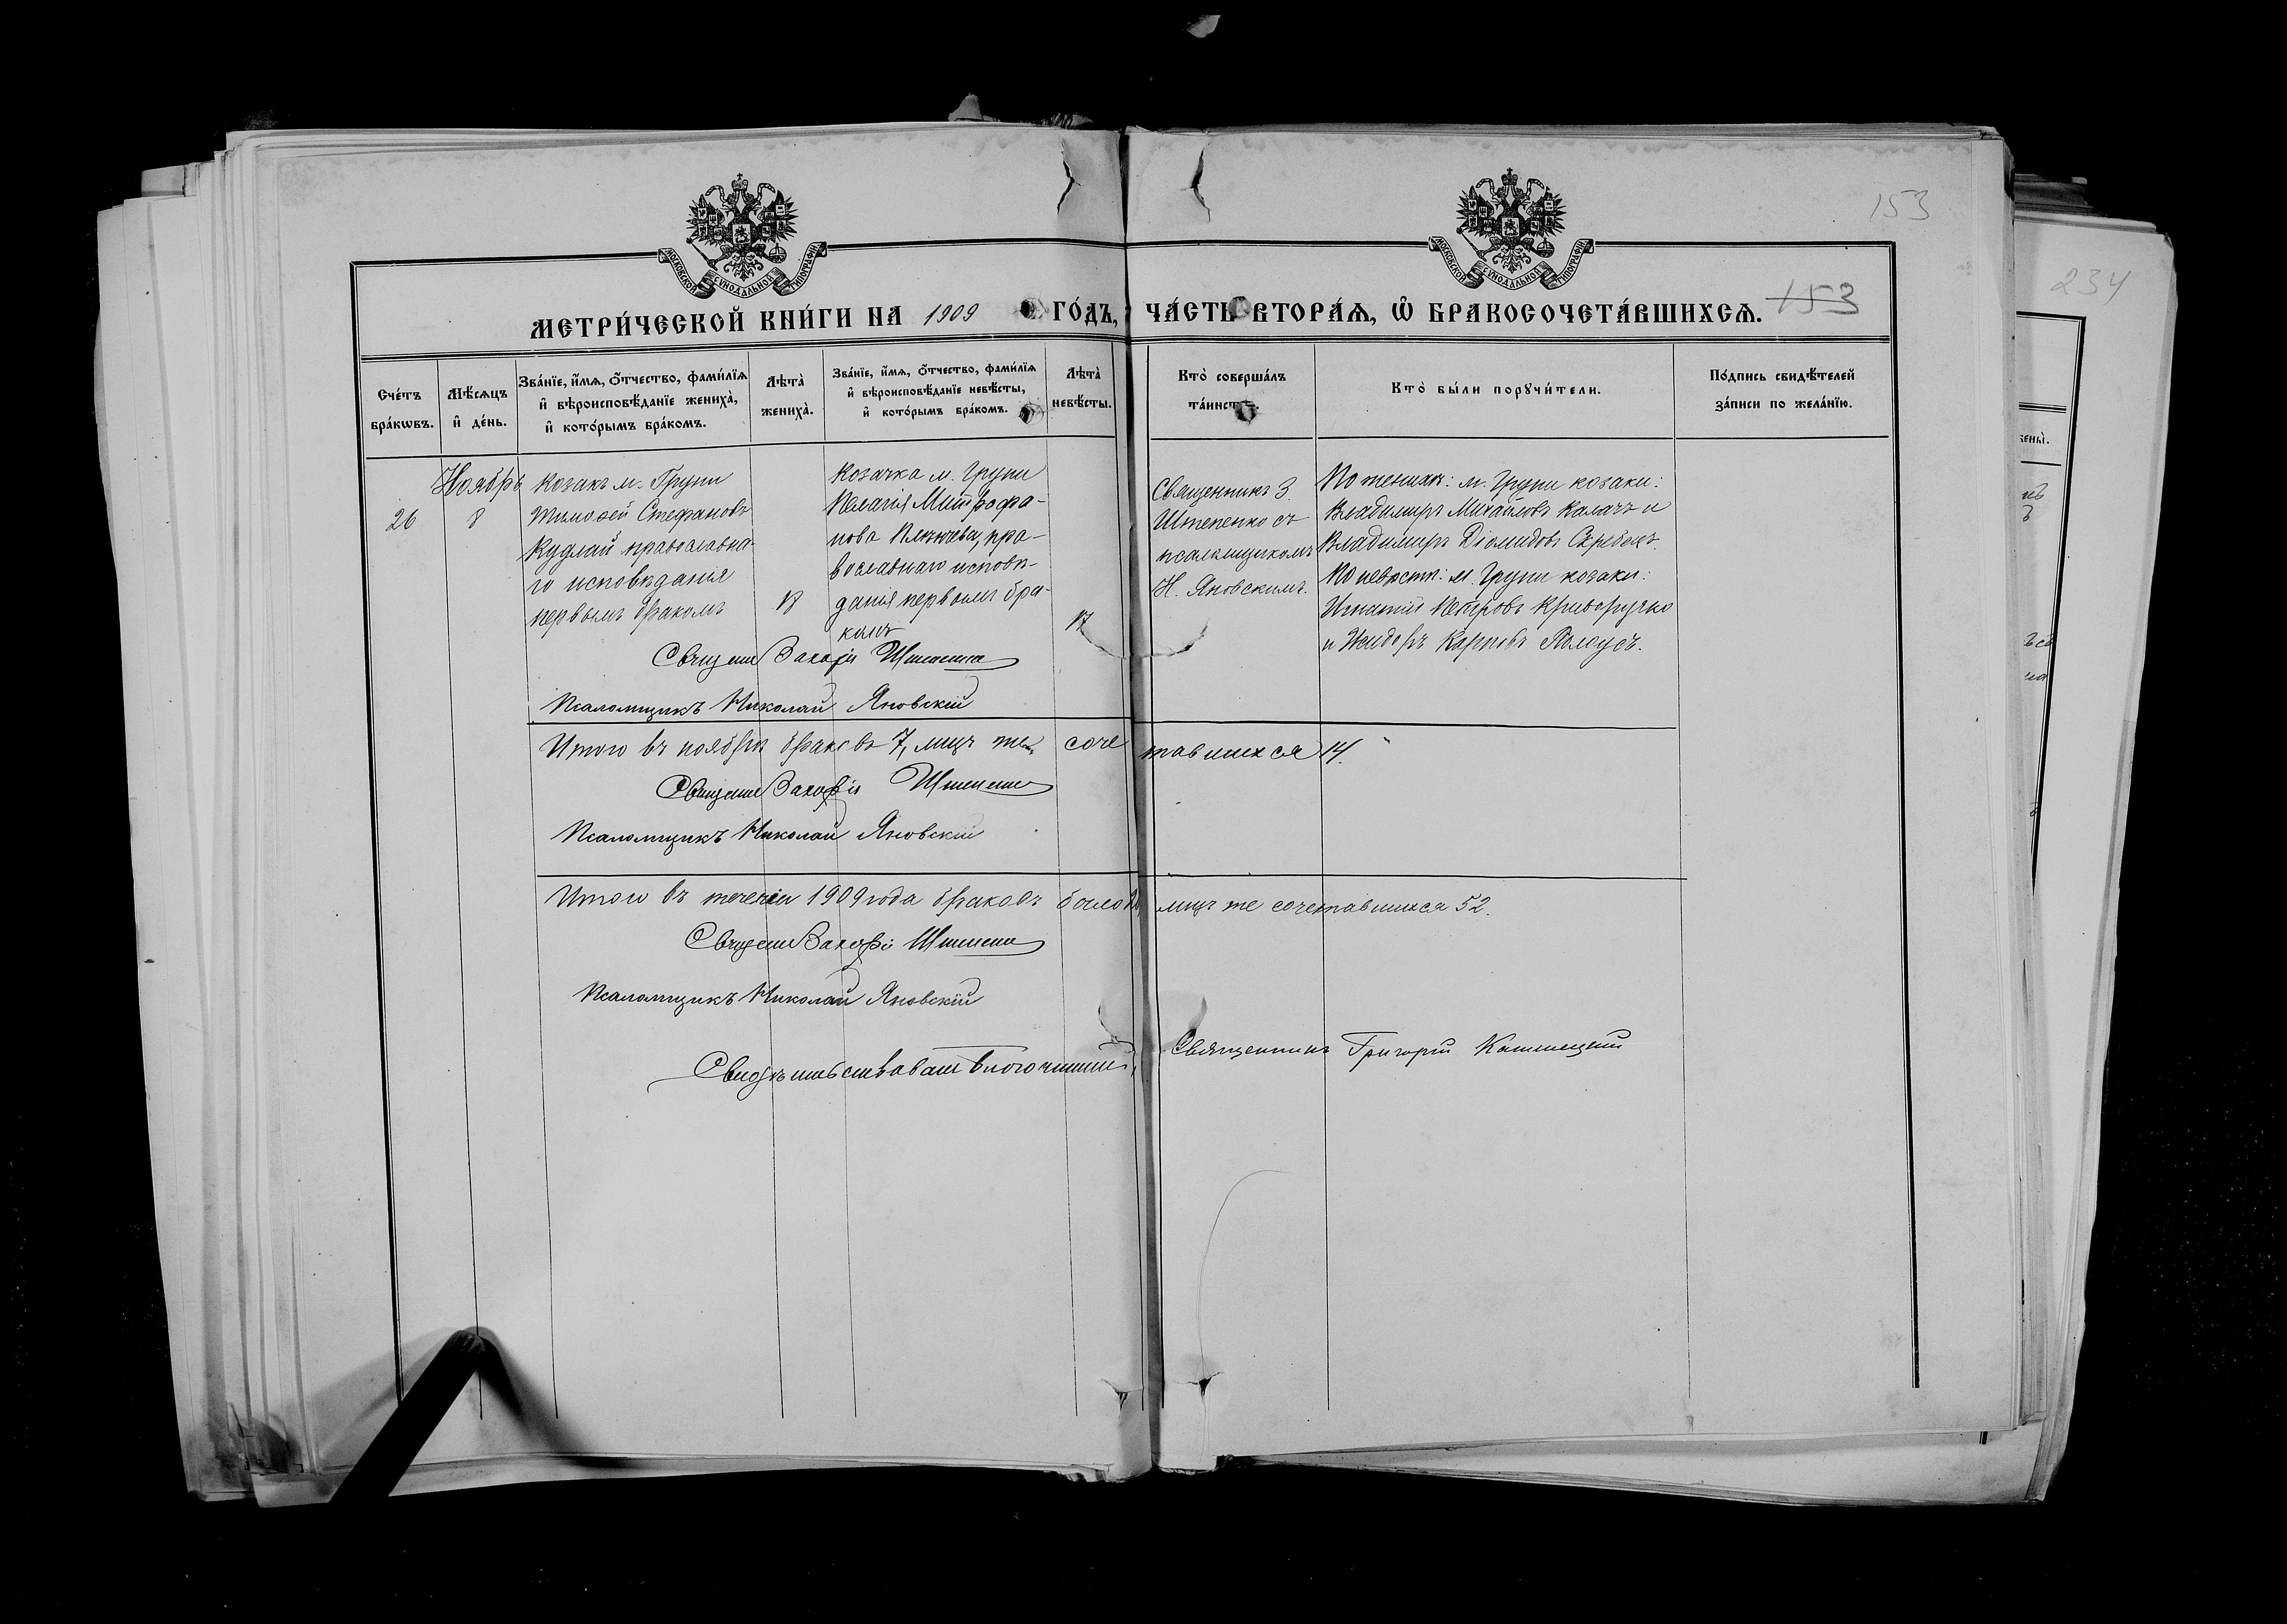 153
234
МОСКОВСКОЙ СѴНОДАЛЬНОЙ ТИПОГРАФІИ
МОСКОВСКОЙ СѴНОДАЛЬНОЙ ТИПОГРАФІИ
МЕТРИ́ЧЕСКОЙ КНИ́ГИ НА 1909 ГО́ДЪ, ЧА́СТЬ ВТОРА́Ѧ, Ѽ БРАКОСОЧЕТА́ВШИХСѦ. 153
Сче́тъ
бра́кѡвъ.
Мѣ́сѧцъ
и҆ де́нь.
Зва́нїе, и҆́мѧ, ѻ҆́тчество, фами́лїѧ
и҆ вѣроисповѣ́данїе жениха̀,
и҆ кото́рымъ бра́комъ.
Лѣта̀
жениха̀.
Зва́нїе, и҆́мѧ, ѻ҆́тчество, фами́лїѧ
и҆ вѣроисповѣ́данїе невѣ́сты,
и҆ кото́рымъ бра́комъ.
Лѣта̀
невѣ́сты.
Кто̀ соверша́лъ
та́инст
Кто̀ бы́ли порꙋчи́тели.
По́дпись свидѣ́телей
за́писи по жела́нїю.
26
Ноябрь
8
Козакъ м. Груни
Тимоѳей Стефановъ
Кудлай православна-
го исповѣданія
первымъ бракомъ
18
Козачка м. Груни
Пелагія Митрофа-
нова, пра-
вославнаго исповѣ-
данія первымъ бра-
комъ
17
Священникъ З.
Штепенко съ
псаломщикомъ
Н. Яновскимъ.
По женихѣ: м. Груни козаки:
Владимиръ Михайловъ Калачъ и
Владимиръ Діомидовъ
По невѣстѣ: м. Груни козаки:
Игнатій Петровъ Криворучко
и Исидоръ Карповъ
Священ Захарія Штепенко
Псаломщикъ Николай Яновскій
Итого въ ноябрѣ браковъ 7, лицъ же соче тавшихся 14.
Священ Захарія Штепенко
Псаломщикъ Николай Яновскій
Итого въ теченіи 1909 года браковъ было 26, лицъ же сочетавшихся 52.
Священ Захарія Штепенко
Псаломщикъ Николай Яновскій
Свидѣтельствовалъ благочинный, Священникъ Григорій